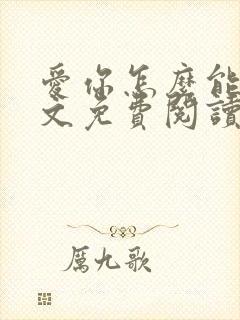 愛你怎麼能
文免費閱讀
厲九歌